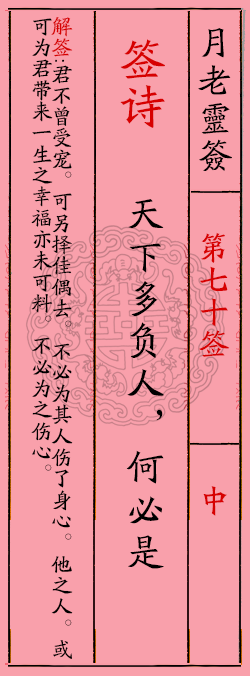 月老靈簽
第七十签
中
签诗
天下多负人，何必是
解签:君不曾受宠。可另择佳偶去。不必为其人伤了身心。他之人。或
可为君带来一生之幸福亦未可料。不必为之伤心。